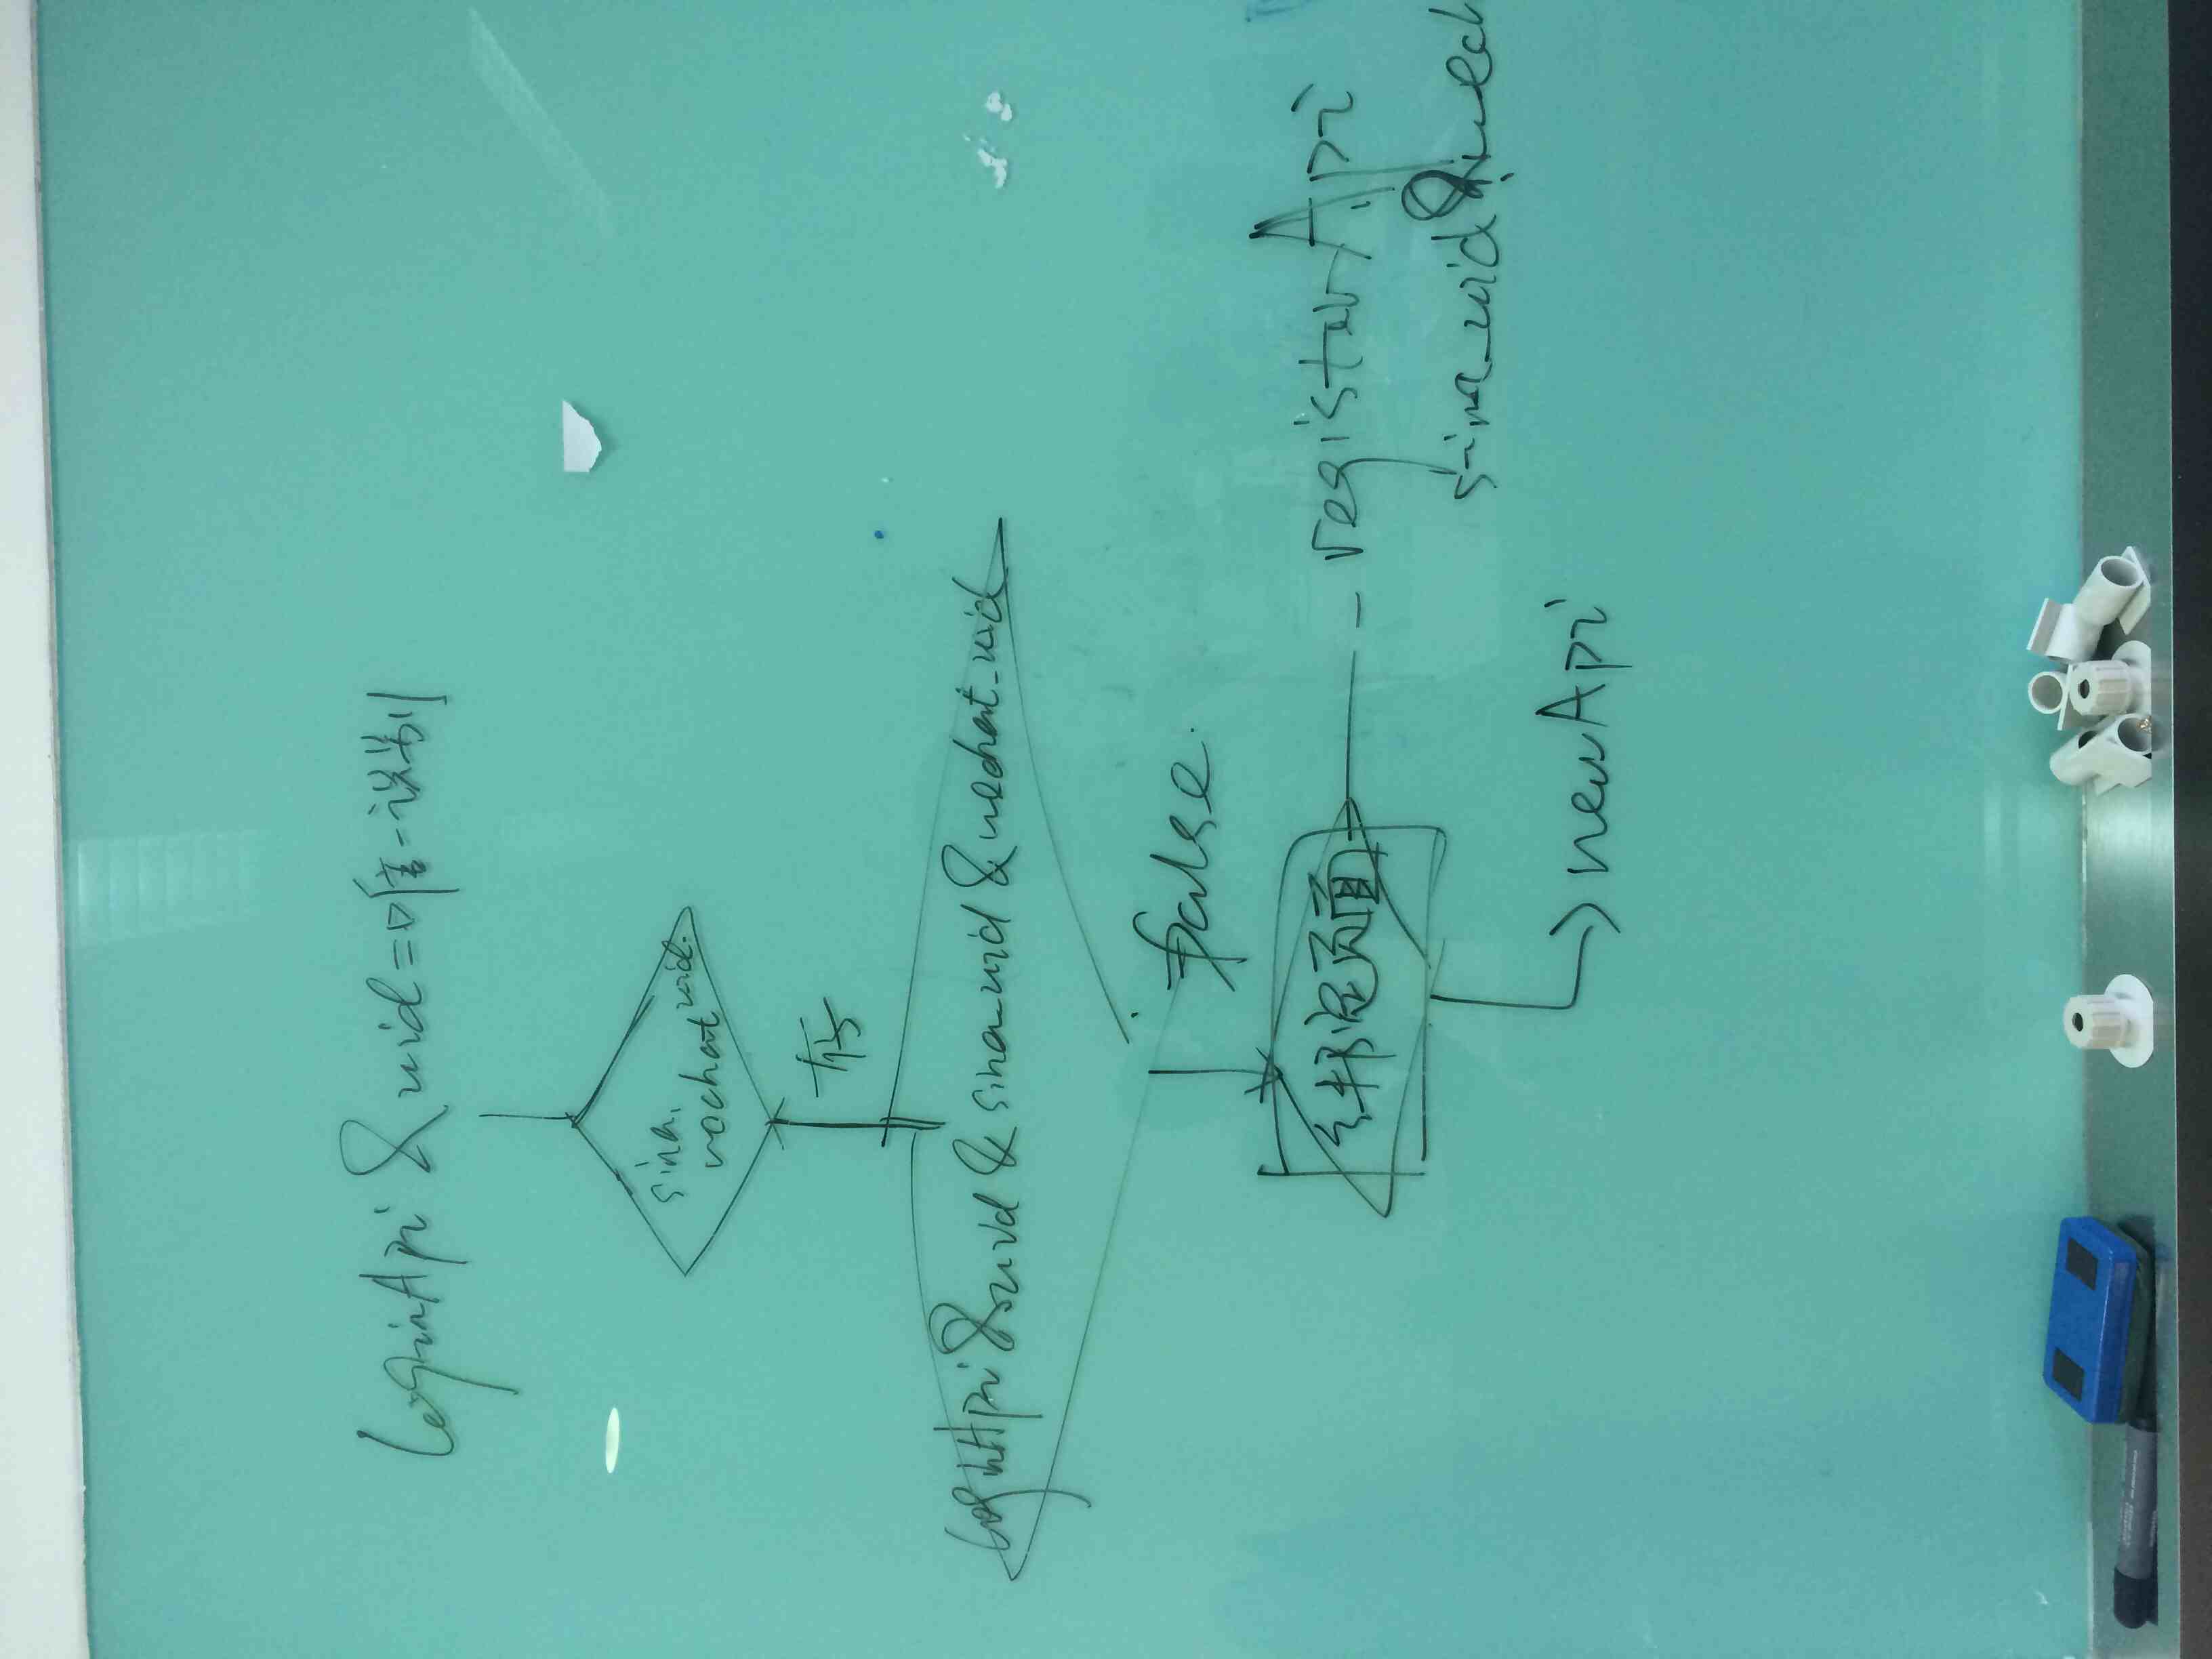 LoginApi & uid=唯一识别
sina.
wechat uid.
存
LoginApi & uid & sina_uid & wechat_uid
false.
绑定页面
registerApi
sina_uid & wech
newApi